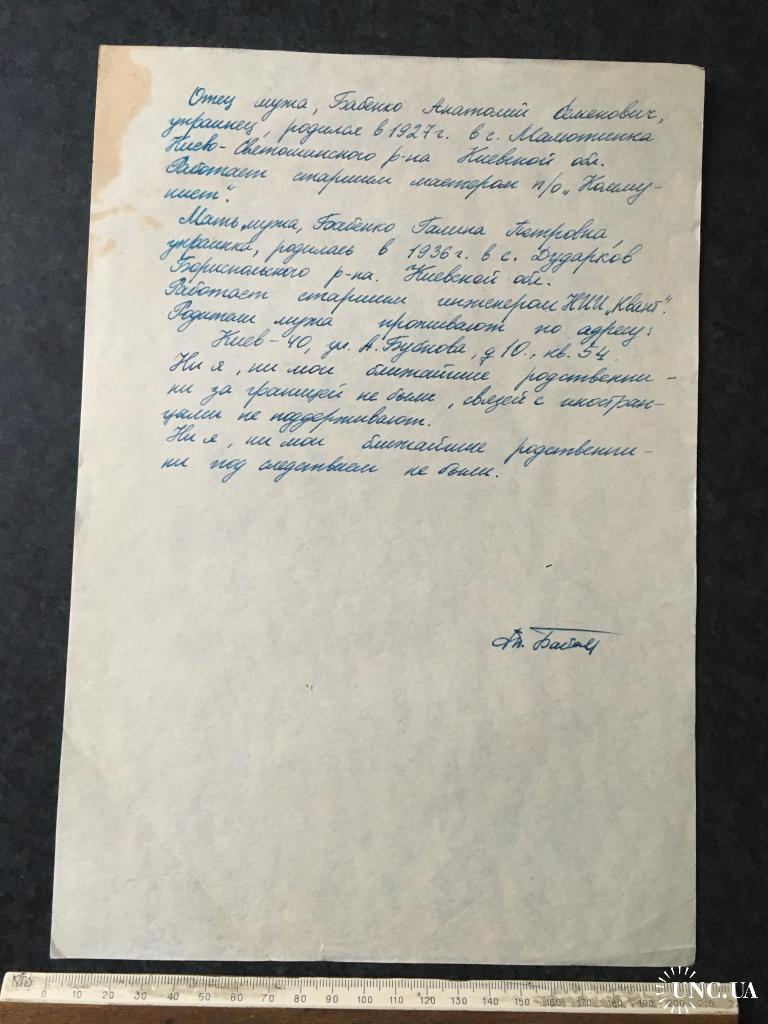 Отец мужа, Бабенко Анатолий Семенович,
украинец, родился в 1927 г. в с. Малютинка
Киево-Святошинского р-на Киевской обл.
Работает старшим мастером п/о „Комму-
нист“.
Мать мужа, Бабенко Галина Петровна,
украинка, родилась в 1936 г. в с. Дударков
Бориспольского р-на. Киевской обл.
Работает старшим инженером НИИ „Квант“.
Родители мужа проживают по адресу:
Киев-40, ул. А. Бубнова, д 10., кв. 54.
Ни я, ни мои ближайшие родственни-
ки за границей не были, связей с иностран-
цами не поддерживают.
Ни я, ни мои ближайшие родственни-
ки под следствием не были.
0 10 20 30 40 50 60 70 80 90 100 110 120 130 140 150 160 170 180 190 200 210
UNC.UA